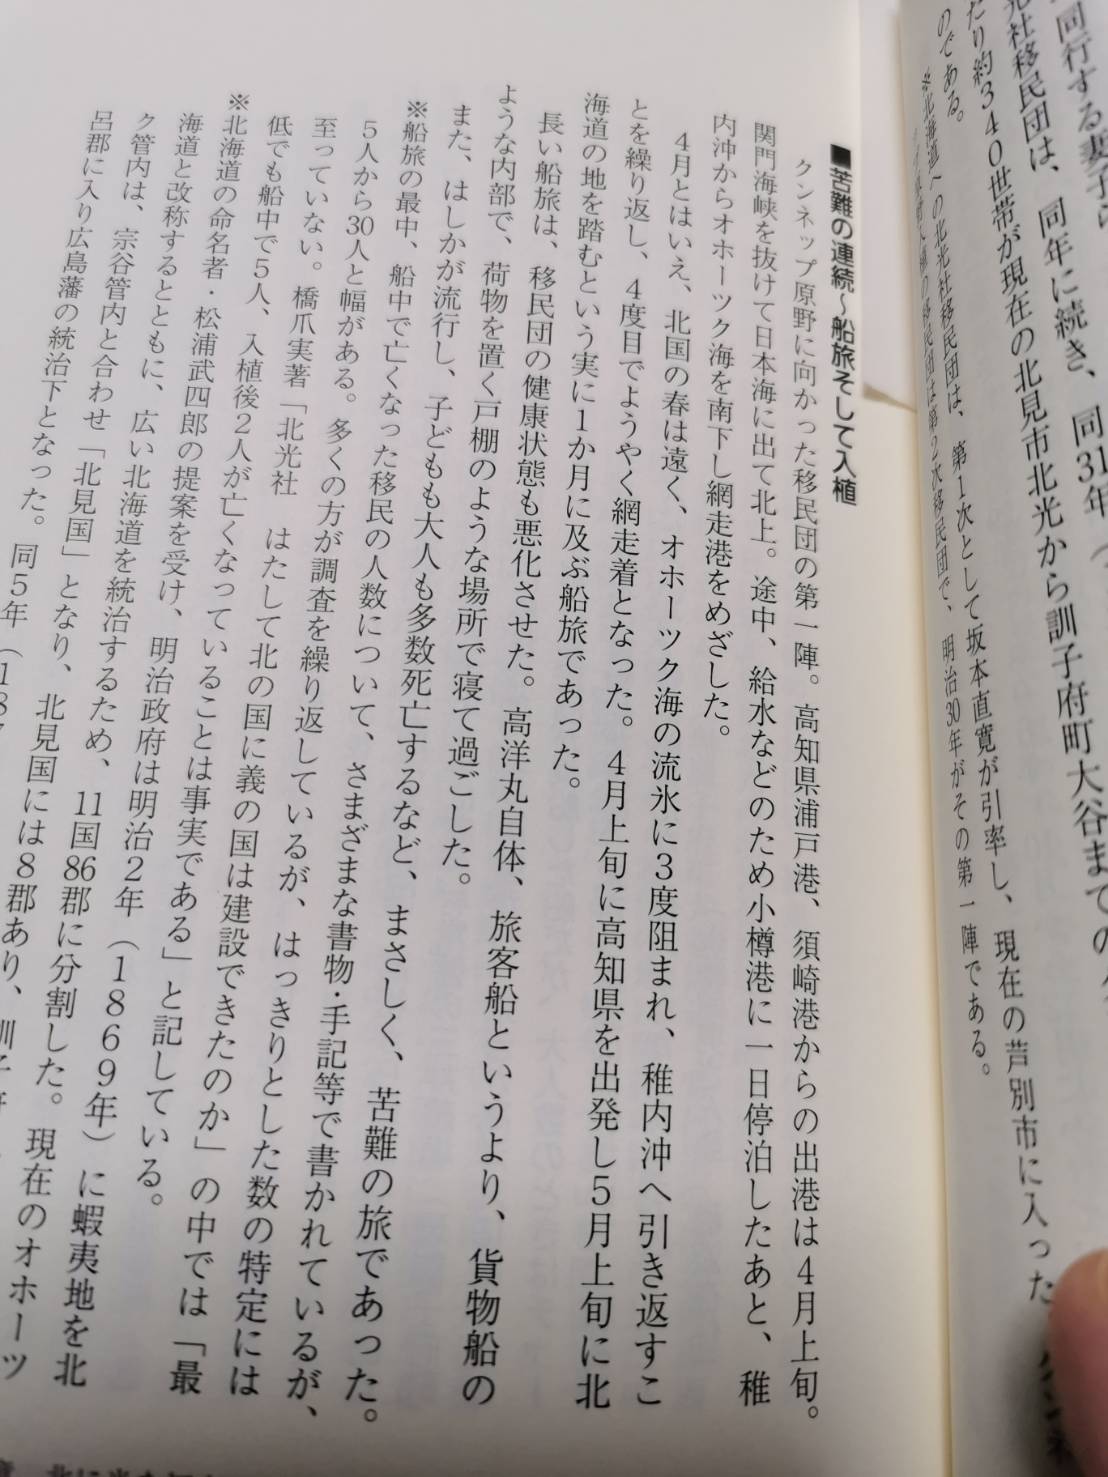 同行する妻子ら
光社移民団は、同年に続き、同31年（
たり約３４０世帯が現在の北見市北光から訓子府町大谷までの
のである。
※北海道への北光社移民団は、第１次として坂本直寛が引率し、現在の芦別市に入った
移民団は第２次移民団で、明治30年がその第一陣である。
■苦難の連続～船旅そして入植
クンネップ原野に向かった移民団の第一陣。高知県浦戸港、須崎港からの出港は４月上旬。
関門海峡を抜けて日本海に出て北上。途中、給水などのため小樽港に一日停泊したあと、稚
内沖からオホーツク海を南下し網走港をめざした。
４月とはいえ、北国の春は遠く、オホーツク海の流氷に３度阻まれ、稚内沖へ引き返すこ
とを繰り返し、４度目でようやく網走着となった。４月上旬に高知県を出発し５月上旬に北
海道の地を踏むという実に１か月に及ぶ船旅であった。
長い船旅は、移民団の健康状態も悪化させた。高洋丸自体、旅客船というより、貨物船の
ような内部で、荷物を置く戸棚のような場所で寝て過ごした。
また、はしかが流行し、子どもも大人も多数死亡するなど、まさしく、苦難の旅であった。
※船旅の最中、船中で亡くなった移民の人数について、さまざまな書物・手記等で書かれているが、
５人から30人と幅がある。多くの方が調査を繰り返しているが、はっきりとした数の特定には
至っていない。橋爪実著「北光社　はたして北の国に義の国は建設できたのか」の中では「最
低でも船中で５人、入植後２人が亡くなっていることは事実である」と記している。
※北海道の命名者・松浦武四郎の提案を受け、明治政府は明治２年（１８６９年）に蝦夷地を北
海道と改称するとともに、広い北海道を統治するため、11国86郡に分割した。現在のオホーツ
ク管内は、宗谷管内と合わせ「北見国」となり、北見国には８郡あり、訓子府
呂郡に入り広島藩の統治下となった。同５年（１８７